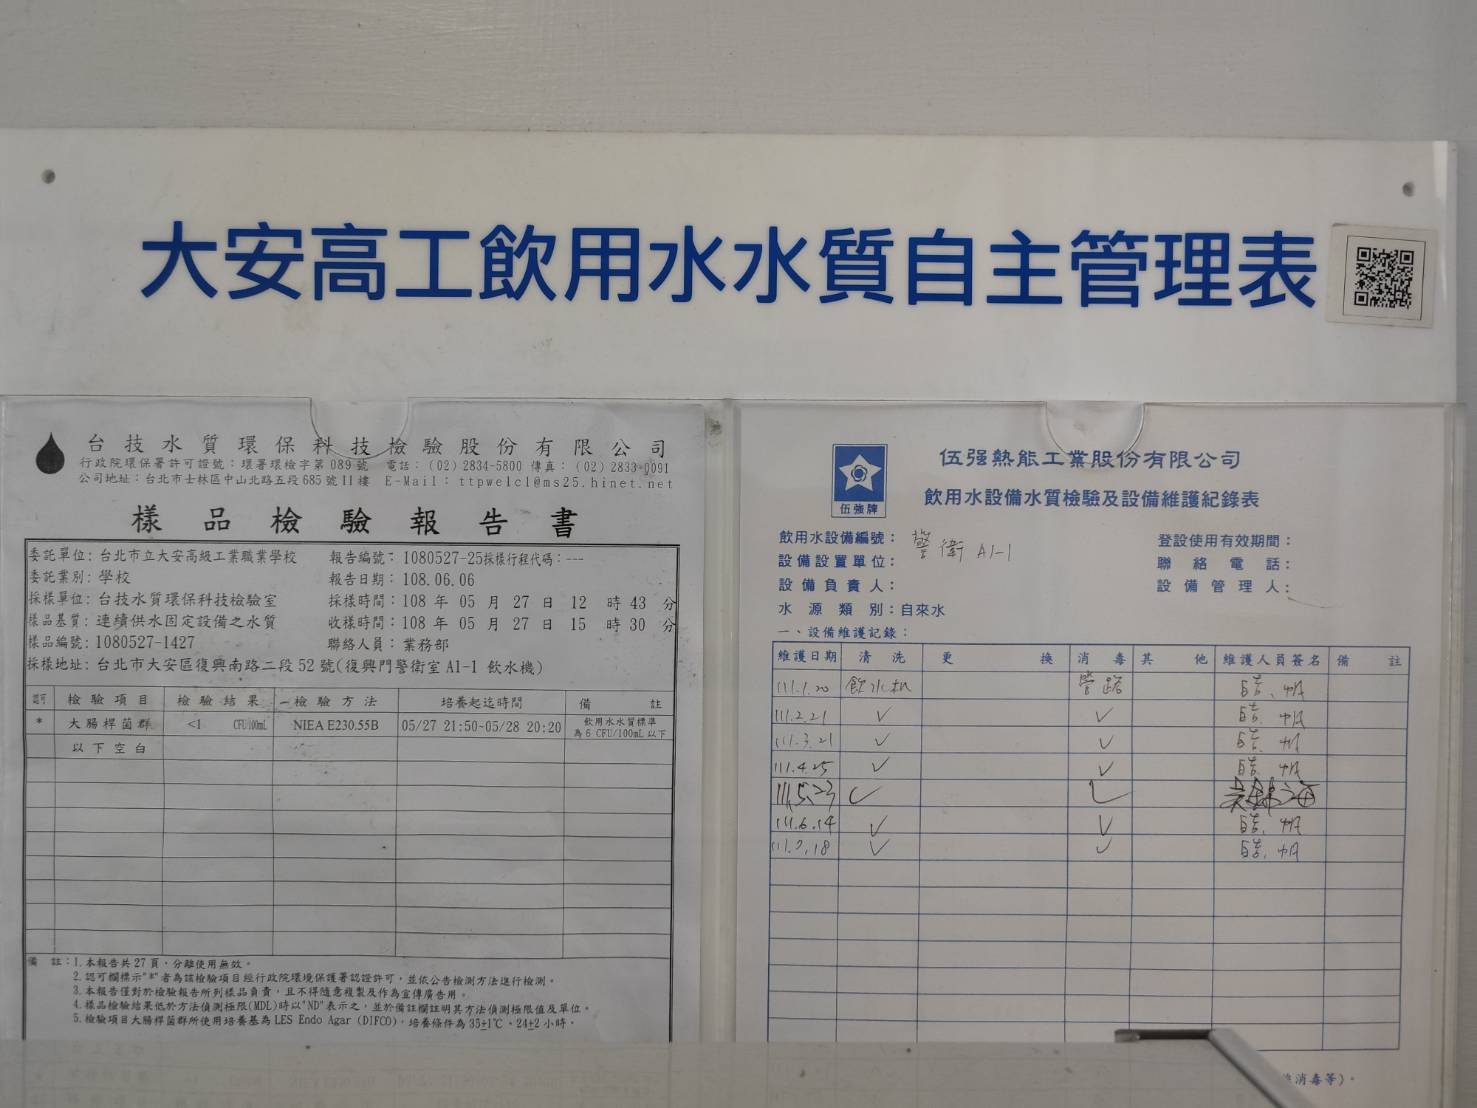 大安高工飲用水水質自主管理表
台技水質環保科技檢驗股份有限公司
行政院環保署許可證號：環署環檢字第089號 電話：(02)2834-5800 傳真：(02)2833-0091
公司地址：台北市士林區中山北路五段685號11樓 E-Mail：ttpwelcl@ms25.hinet.net
樣品檢驗報告書
委託單位：台北市立大安高級工業職業學校 報告編號：1080527-25採樣行程代碼：---
委託業別：學校 報告日期：108.06.06
採樣單位：台技水質環保科技檢驗室 採樣時間：108 年 05 月 27 日 12 時 43 分
樣品基質：連續供水固定設備之水質 收樣時間：108 年 05 月 27 日 15 時 30 分
樣品編號：1080527-1427 聯絡人員：業務部
採樣地址：台北市大安區復興南路二段52號(復興門警衛室A1-1 飲水機)
認可 檢驗項目 檢驗結果 檢驗方法 培養起迄時間 備註
* 大腸桿菌群 <1 CFU/100mL NIEA E230.55B 05/27 21:50~05/28 20:20 飲用水水質標準
為6 CFU/100mL以下
以下空白
備 註：1.本報告共27頁，分離使用無效。
2.認可欄標示"*"者為該檢驗項目經行政院環境保護署認證許可，並依公告檢測方法進行檢測。
3.本報告僅對於檢驗報告所列樣品負責，且不得隨意複製及作為宣傳廣告用。
4.樣品檢驗結果低於方法偵測極限(MDL)時以"ND"表示之，並於備註欄註明其方法偵測極限值及單位。
5.檢驗項目大腸桿菌群所使用培養基為 LES Endo Agar (DIFCO)，培養條件為35±1℃、24±2小時。
伍強牌
伍强熱能工業股份有限公司
飲用水設備水質檢驗及設備維護紀錄表
飲用水設備編號：警衛 A1-1 登設使用有效期間：
設備設置單位： 聯絡電話：
設備負責人： 設備管理人：
水源類別：自來水
一、設備維護記錄：
維護日期 清洗 更換 消毒 其他 維護人員簽名 備註
111.1.20 飲水机 管路
111.2.21 ✓ ✓
111.3.21 ✓ ✓
111.4.25 ✓ ✓
111.5.23 ✓ ✓
111.6.14 ✓ ✓
111.7.18 ✓ ✓
消毒等)。